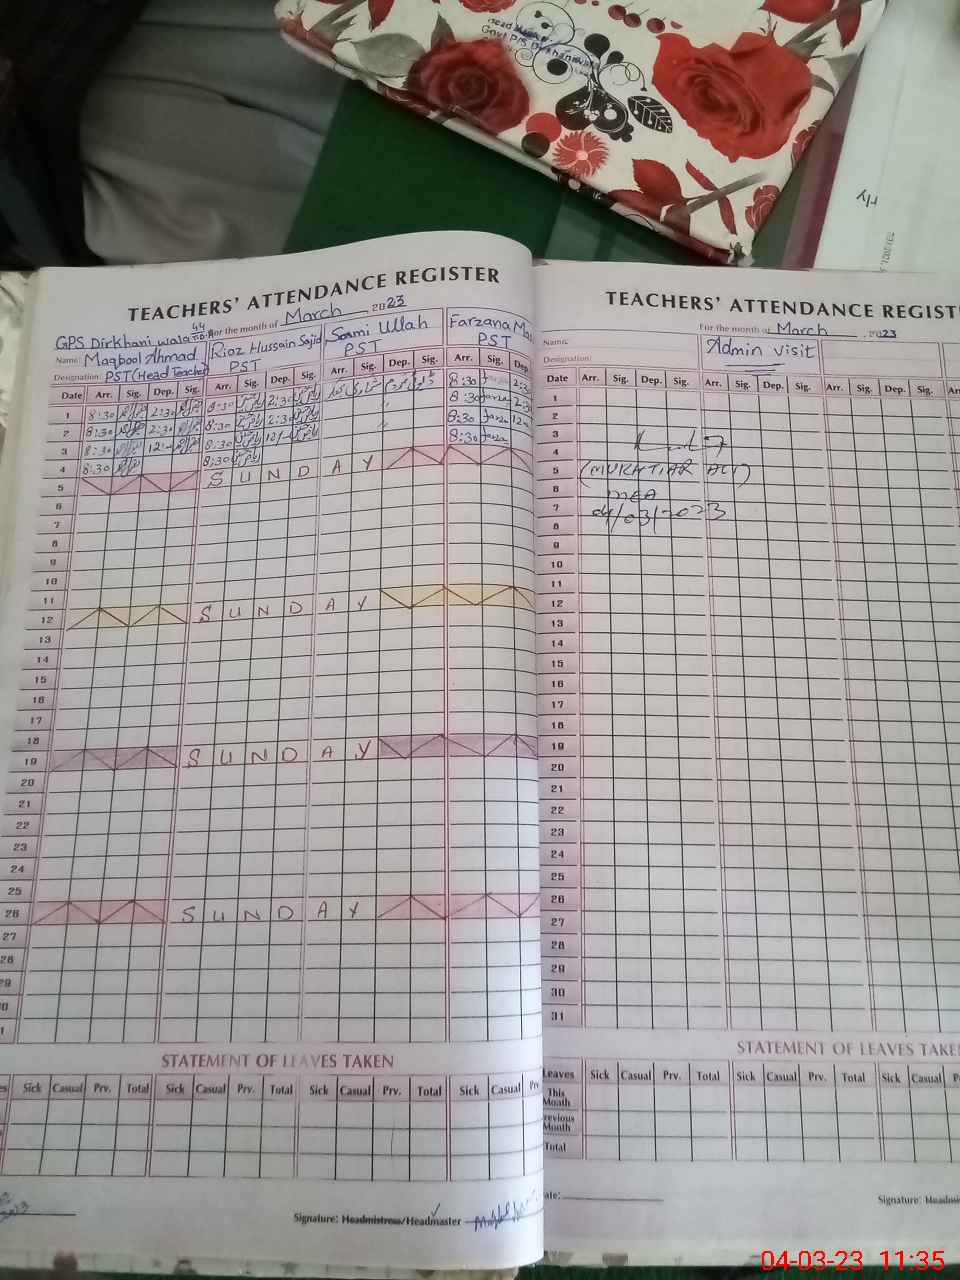 Govt P/S Dirkhaniwala
TEACHERS' ATTENDANCE REGISTER
GPS Dirkhani wala For the month of March 2023
Name: Maqbool Ahmad Riaz Hussain Sajid Sami Ullah Farzana
Designation: PST (Head Teacher) PST PST PST
Date Arr. Sig. Dep. Sig. Arr. Sig. Dep. Sig. Arr. Sig. Dep. Sig. Arr. Sig. Dep.
1 8:30 2:30 8:30 2:30 8:30
2 8:30 2:30 8:30 2:30 8:30
3 8:30 12:- 8:30 12:- 8:30
4 8:30 8:30 8:30
5 SUNDAY
6
7
8
9
10
11
12 SUNDAY
13
14
15
16
17
18
19 SUNDAY
20
21
22
23
24
25
26 SUNDAY
27
28
29
STATEMENT OF LEAVES TAKEN
Sick Casual Prv. Total Sick Casual Prv. Total Sick Casual Prv. Total Sick Casual
Signature: Headmistress/Headmaster
TEACHERS' ATTENDANCE
For the month of March 2023
Name:
Admin visit
Designation:
Date Arr. Sig. Dep. Sig. Arr. Sig. Dep. Sig. Arr. Sig. Dep. Sig.
1
2
3
4
5 (MUKHTIAR ALI)
6 MEA
7 04/03/2023
8
9
10
11
12
13
14
15
16
17
18
19
20
21
22
23
24
25
26
27
28
29
30
31
STATEMENT OF LEAVES TAKEN
Leaves Sick Casual Prv. Total Sick Casual Prv. Total Sick Casual
This Month
Previous Month
Total
Signature:
04-03-23 11:35